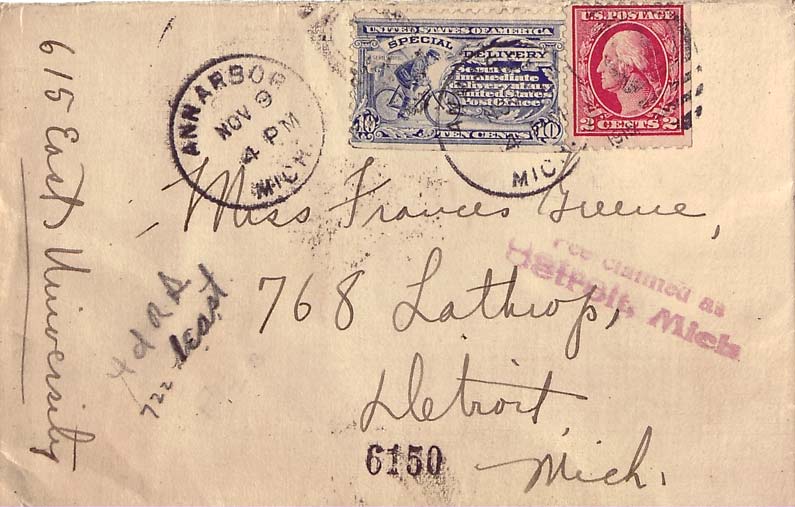 615 East University
ANN ARBOR
NOV 9
4 PM
MICH.
UNITED STATES OF AMERICA
SPECIAL DELIVERY
Secures
immediate
delivery at any
United States
Post Office
10 TEN CENTS 10
U.S. POSTAGE
2 CENTS 2
4
MICH.
Miss Frances Greene,
768 Lathrop,
Detroit
Mich.
Fee claimed as
Detroit, Mich
722
6150